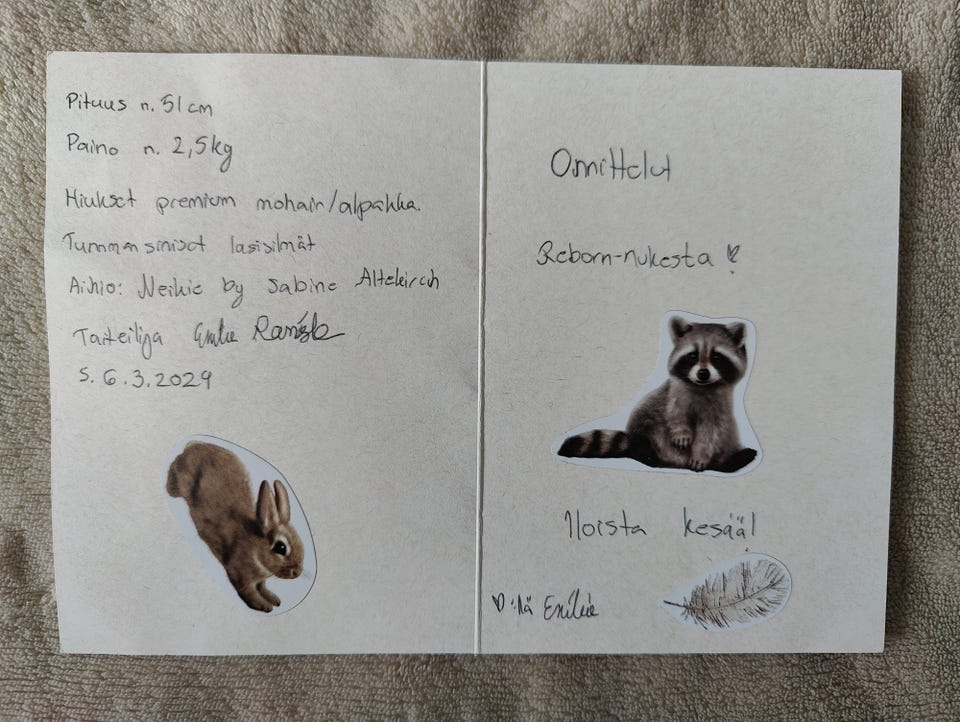 Pituus n. 51 cm
Paino n. 2,5kg
Hiukset premium mohair/alpakka.
Tumman siniset lasisilmät
Aihio: Neikie by Sabine Altekirch
Taiteilija Emilie
s. 6.3.2029
Onnittelut
Reborn-nukesta ♥!
Iloista kesää!
♡:llä Emilie